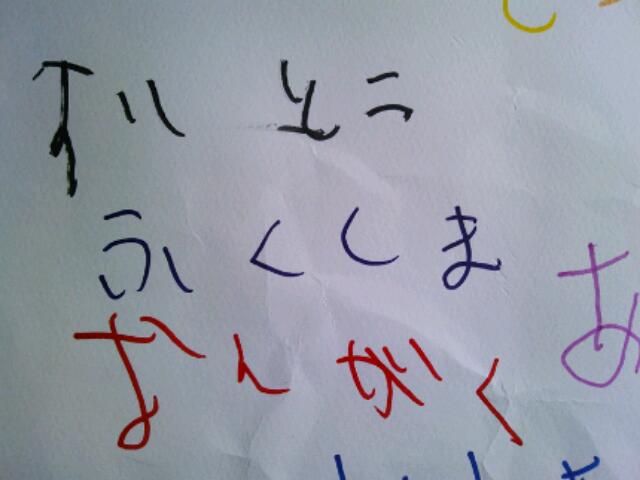 すいとこ
ふくしま
おんがく